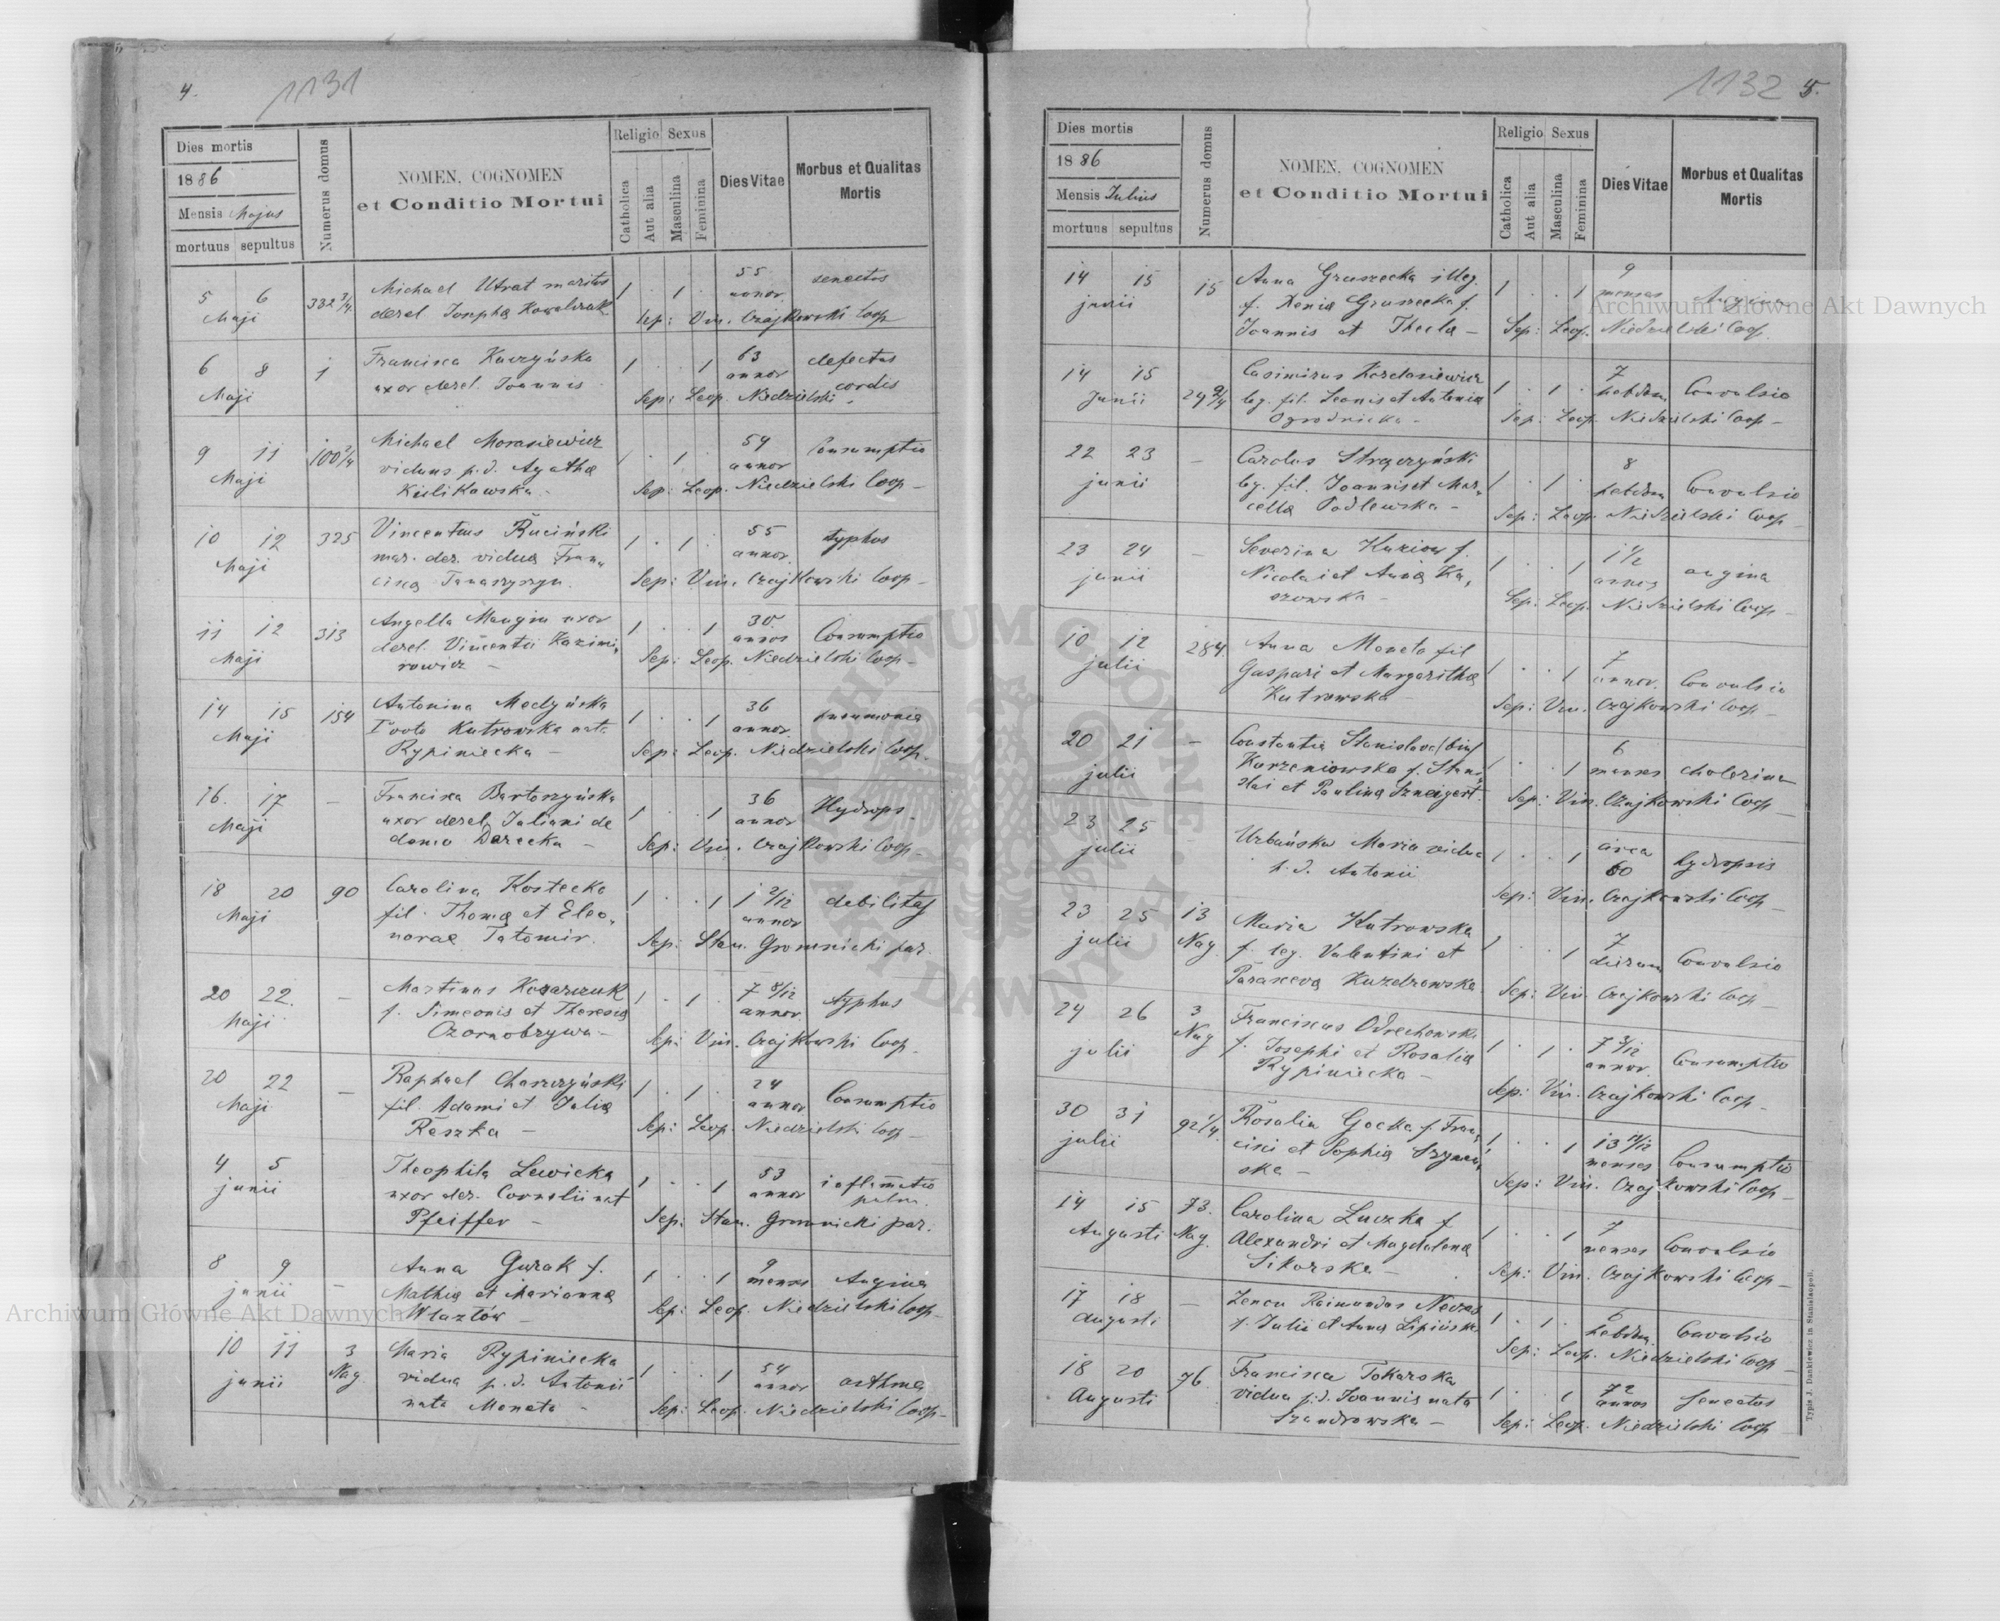 4.
1131
Dies mortis
1886
Mensis Majus
mortuus sepultus
Numerus domus
NOMEN, COGNOMEN
et Conditio Mortui
Religio Sexus
Catholica
Aut alia
Masculina
Feminina
Dies Vitae
Morbus et Qualitas
Mortis
5 6 Maji 332 3/4 Michael Utrat maritus 1 . 1 . 55 annor. senectus
derel. Josepha Kowalczuk Sep: Vin. Czajkowski Coop
6 8 Maji 1 Francisca Kuczyńska 1 . . 1 63 annor defectus cordis
uxor derel. Joannis Sep: Leop. Niedzielski
9 11 Maji Michael Morasiewicz 1 . 1 54 annor Consumptio
viduus p.d. Agatha Sep: Leop. Niedzielski Coop
Kulikowska
10 12 Maji 325 Vincentius Ruciński 1 . 1 . 55 annor. typhus
mar. der. vidua Fran
cisca Tanaszyszyn. Sep: Vin. Czajkowski Coop
11 12 Maji 313 Angella Mangin uxor 1 . . 1 30 annos Consumptio
derel. Vincentii Kazimi
rowicz Sep: Leop. Niedzielski Coop
14 15 Maji 154 Antonina Medyńska 1 . . 1 36 annor. pneumonia
I voto Kutrowska nata
Rypiniecka Sep: Leop. Niedzielski Coop.
16. 17 Maji Francisca Bartoszyńska 1 . . 1 36 annor Hydrops
uxor derel. Juliani de
domo Darecka Sep: Vin. Czajkowski Coop
18 20 Maji 90 Carolina Kostecka 1 . . 1 1 2/12 annor debilitas
fil. Thoma et Eleo
norae Tatomir. Sep: Stan. Gromnicki par.
20 22. Maji Martinus Kosarczuk 1 . 1 . 7 8/12 annor. typhus
f. Simeonis et Theresia
Czornobrywa Sep: Vin. Czajkowski Coop.
20 22 Maji Raphael Charczyński 1 . 1 . 24 annor Consumptio
fil. Adami et Julia
Reszka Sep: Leop. Niedzielski Coop
4 5 junii Theophila Lewicka 1 . . 1 53 annor inflamatio
uxor der. Cornelii nat
Pfeiffer Sep: Stan. Gromnicki par.
8 9 junii Anna Gurak f. 1 . . 1 9 menses Angina
Mathia et Marianna
Wlazłów Sep: Leop. Niedzielski Coop
10 11 junii 3 Nag Maria Rypiniecka 1 . . 1 54 annor asthma
vidua p.d. Antonii
nata Moneta Sep: Leop. Niedzielski Coop
1132 5.
Dies mortis
1886
Mensis Julius
mortuus sepultus
Numerus domus
NOMEN, COGNOMEN
et Conditio Mortui
Religio Sexus
Catholica
Aut alia
Masculina
Feminina
Dies Vitae
Morbus et Qualitas
Mortis
14 15 junii 15 Anna Gruszecka illeg. 1 . . 1 9 menses Angina
f. Xenia Gruszecka f.
Joannis et Thecla Sep: Leop. Niedzielski Coop.
14 15 Junii Casimirus 1 . 1 . 7 hebdom Convulsio
leg. fil. Leonis et Antonia
Ogrodnicka Sep: Leop. Niedzielski Coop
22 23 junii Carolus Strączyński 1 . 1 . 8 hebdom Convulsio
leg. fil. Joannis et Mar
cella Podlewska Sep: Leop. Niedzielski Coop
23 24 junii Severina Kuziow f. 1 . . 1 1 1/2 annos angina
Nicolai et Anna Ka
szowska Sep: Leop. Niedzielski Coop
10 12 julii 284. Anna Moneta fil 1 . . 1 7 annor. Convulsio
Gaspari et Margeritha
Kutrowska Sep: Vin. Czajkowski Coop
20 21 julii Constantia Stanislava (bin) 1 . . 1 6 menses cholerina
Korzeniowska f. Stani
slai et Paulina Szneigert Sep: Vin. Czajkowski Coop
23 25 julii Urbańska Maria vidua 1 . . 1 circa 60 hydropsis
p.d. Antonii Sep: Vin. Czajkowski Coop
23 25 julii 13 Nag. Maria Kutrowska 1 . . 1 7 dierum Convulsio
f. leg. Valentini et
Parasceva Kuzdrowska Sep: Vin. Czajkowski Coop
24 26 julii 3 Nag Franciscus Odrechowski 1 . 1 . 7 3/12 annor. Consumptio
f. Josephi et Rosalia
Rypiniecka Sep: Vin. Czajkowski Coop.
30 31 julii 92 1/4. Rosalia Gocka f. Fran 1 . . 1 menses Consumptio
cisci et Sophia Szyman
ska Sep: Vin. Czajkowski Coop
14 15 Augusti 73. Nag. Carolina Luczka f 1 . . 1 7 menses Convulsio
Alexandri et Magdalena
Sikorska Sep: Vin. Czajkowski Coop
17 18 Augusti Zeno Raimundus 1 . 1 . 6 hebdom. Convulsio
f. Julii et Anna Lipińska Sep: Leop. Niedzielski Coop
18 20 Augusti 76 Francisca Tokarska 1 . . 1 72 annos Senectus
vidua p.d. Joannis nata
Szandrowska Sep: Leop. Niedzielski Coop
Typis J. Dankiewicz in Stanislaupoli.
Archiwum Główne Akt Dawnych
Archiwum Główne Akt Dawnych
ARCHIWUM GŁÓWNE AKT DAWNYCH